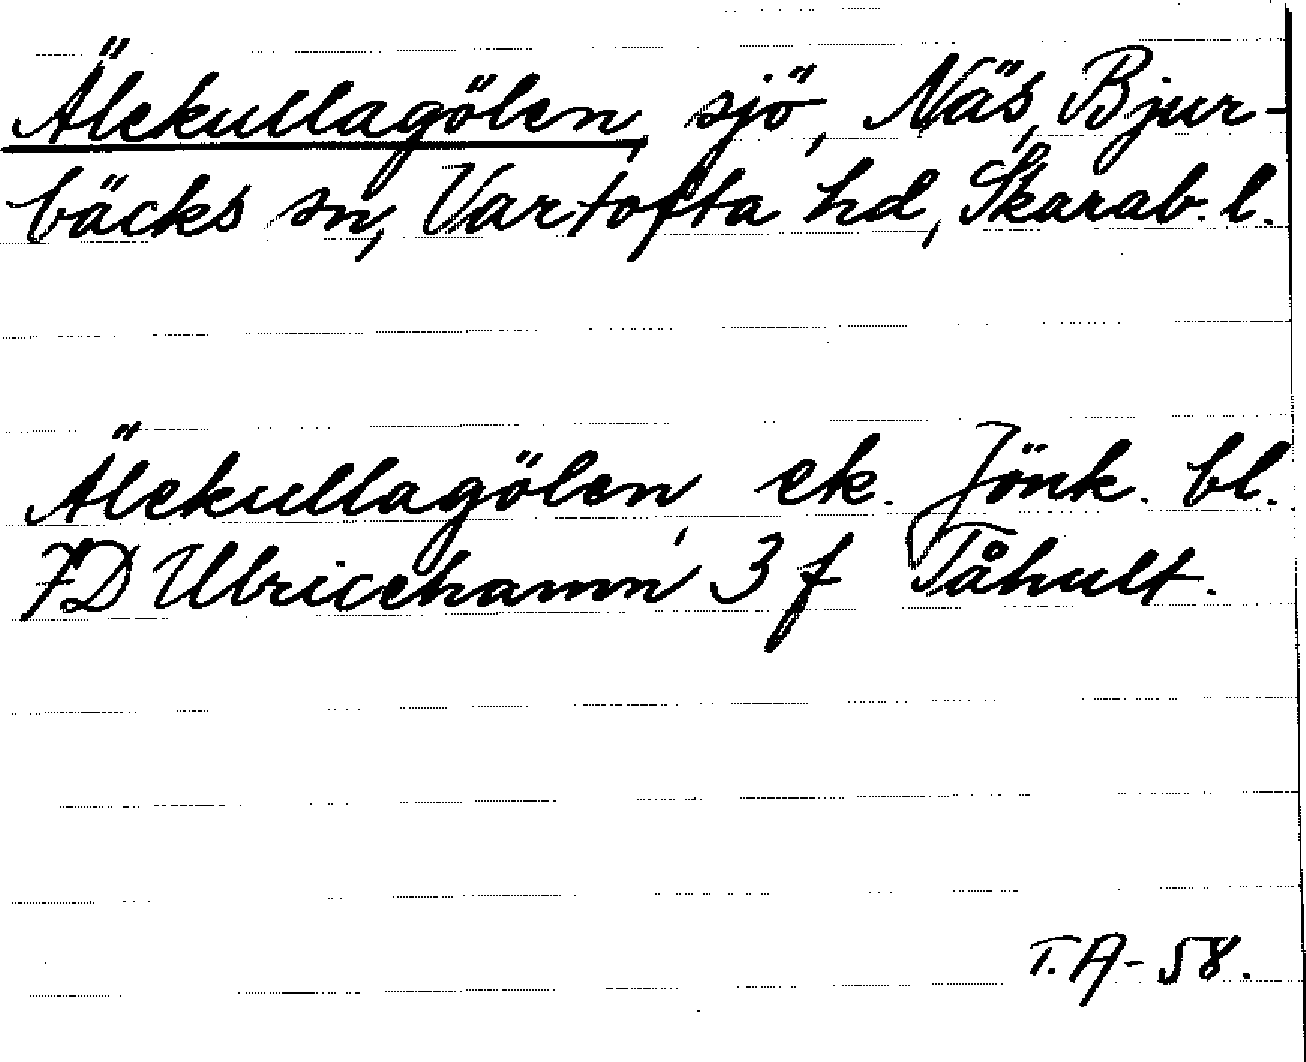 Älekullagölen, sjö, Näs, Bjur-
bäcks sn, Vartofta hd, Skarab. l.
Älekullagölen, ek. Jönk. bl.
7D Ulricehamn 3 f Tåhult.
T.A-58.